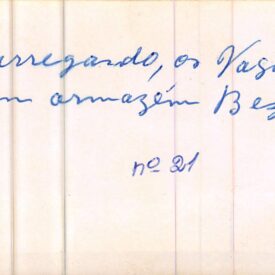 arregando, os Vag
m armazém Bez
nº 21